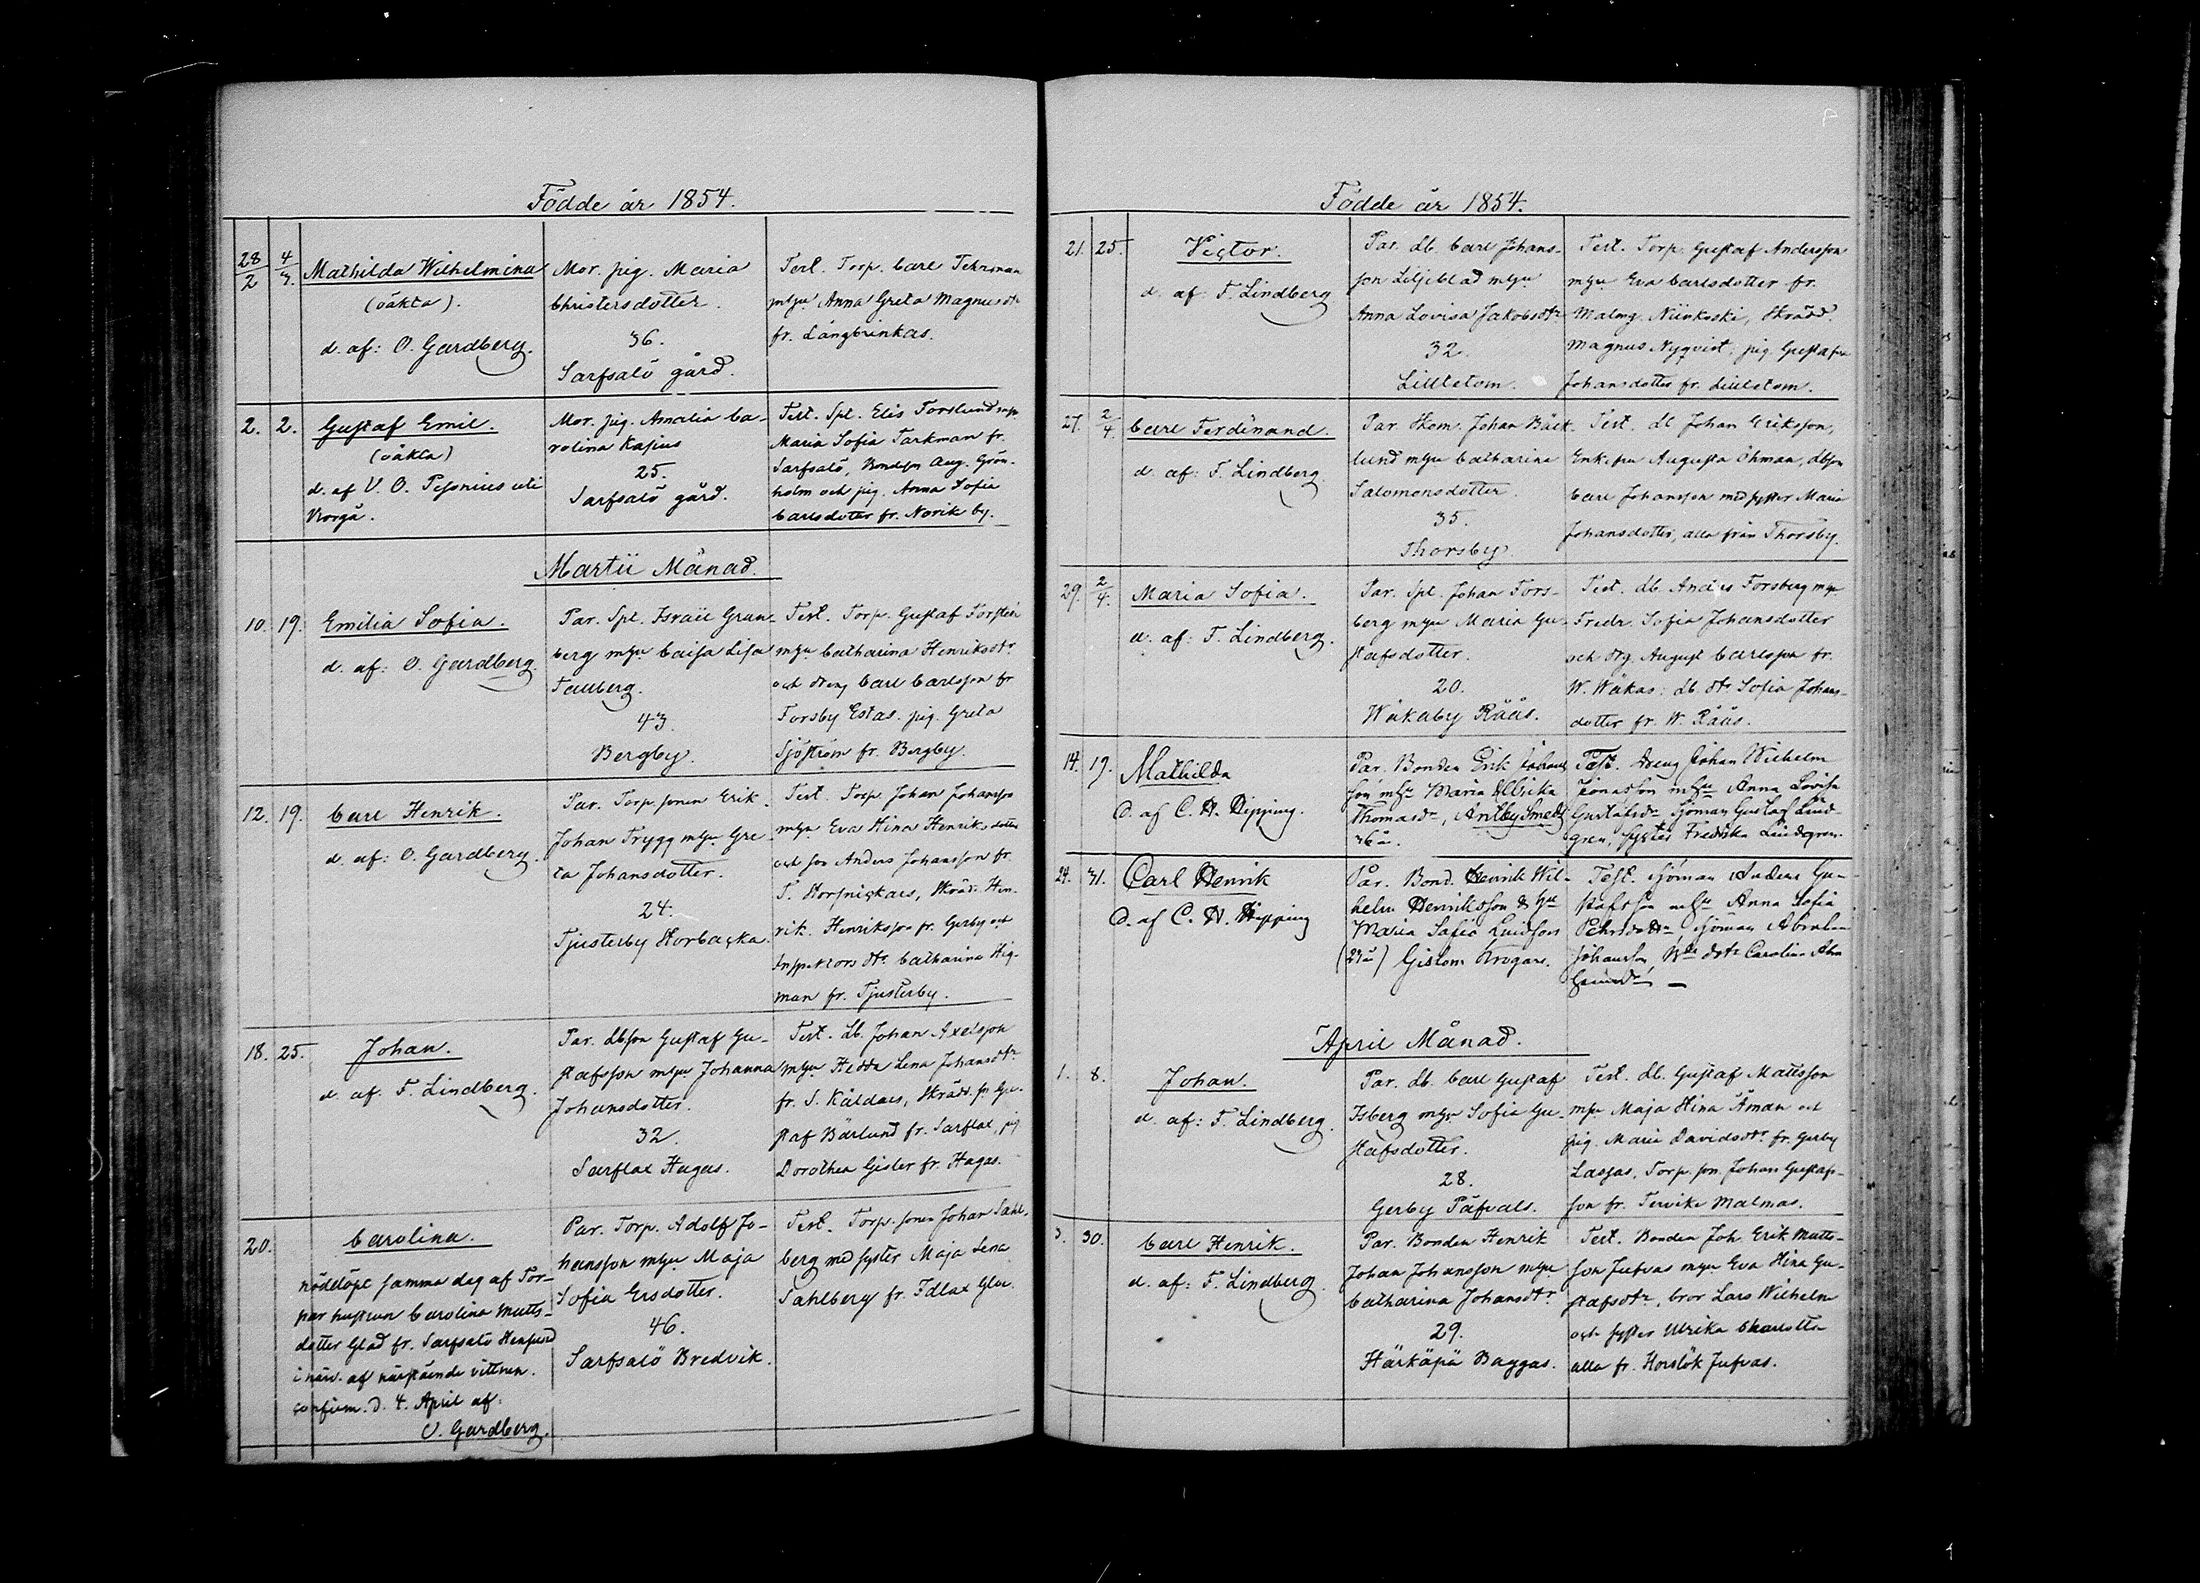 Födde år 1854.
28/2 4/3. Mathilda Wilhelmina
(oäkta).
d. af: O. Gardberg.
Mor. pig. Maria
Christersdotter.
36.
Sarfsalö gård.
Test. Torp. Carl Tehrman
mhu Anna Greta Magnusdtr
fr. Långbrinkas.
2. 2. Gustaf Emil.
(oäkta)
d. af V. O. Pesonius uti
Borgå.
Mor. pig. Amalia Ca-
rolina Kajus
25.
Sarfsalö gård.
Test. Spl. Elis Forslund mhu
Maria Sofia Tarkman fr.
Sarfsalö, Bondson Aug. Grön-
holm och pig. Anna Sofia
Carlsdoter fr. Norik by.
Martii Månad.
10. 19. Emilia Sofia.
d. af: O. Gardberg.
Par. Spl. Israël Gran-
berg mhu Caisa Lisa
Fallberg.
43.
Bergby.
Test. Torp. Gustaf Torstén
mhu Catharina Henriksdtr
och dreng Carl Carlsson fr
Forsby Estas. pig. Greta
Sjöström fr. Bergby.
12. 19. Carl Henrik.
d. af: O. Gardberg.
Par. Torp. sonen Erik
Johan Trygg mhu Gre-
ta Johansdotter.
24.
Tjusterby Korbacka.
Test. Torp Johan Johansson
mhu Eva Stina Henriksdotter
och son Anders Johansson fr.
T. Korsnickars, Skräd. Hen-
rik Henriksson fr. Gerby och
Inspektors dtr Catharina Hig-
man fr. Tjusterby.
18. 25. Johan.
d. af. F. Lindberg.
Par. dbson Gustaf Gu-
stafsson mhu Johanna
Johansdotter.
32.
Sarflax Hagas.
Test. Lb. Johan Axelsson
mhu Hedda Lena Johansdtr
fr. S. Käldars, Skrädd. Gu-
staf Bärlund fr. Sarflax, pig
Dorothea Gisler fr. Hagas.
20. Carolina.
nöddöpt samma dag af Tor-
par hustrun Carolina Matts-
dotter Glad fr. Sarfsalö
i närv. af närstående vittnen.
confirm. d. 4. April af:
O. Gardberg.
Par. Torp. Adolf Jo-
hansson mhu Maja
Sofia Ersdotter.
46.
Sarfsalö Bredvik.
Test. Torp. sonen Johan Sahl-
berg med syster Maja Lena
Sahlberg fr. Idlax
Födde år 1854.
21. 25. Victor.
d. af F. Lindberg
Par. db. Carl Johans-
son Liljeblad mhu
Anna Lovisa Jakobsdtr
32.
Lilletom.
Test. Torp. Gustaf Andersson
mhu Eva Carlsdotter fr.
Malmg. Niinkoski, Skrädd.
Magnus Nyqvist, pig. Gustafva
Johansdotter fr. Lilletom.
27. 2/4. Carl Ferdinand.
d. af: F. Lindberg.
Par. Skom. Johan Bäck-
lund mhu Catharina
Salomonsdotter.
35.
Thorsby.
Test. db Johan Eriksson,
Enkefru Augusta Öhman, dbson
Carl Johansson med syster Maria
Johansdotter, alla från Thorsby.
29. 2/4. Maria Sofia.
d. af: F. Lindberg.
Par. Spl. Johan Fors-
berg mhu Maria Gu-
stafsdotter.
20.
Wäkaby Rääs.
Test. db. Anders Forsberg mhu
Fredr. Sofia Johansdotter
och drg. August Carlsson fr.
W. Wäkas: db. dtr Sofia Johans-
dotter fr. W. Rääs.
14. 19. Mathilda
D. af C. H. Hipping.
Par. Bonden Erik Johans
son mhu Maria Ulrika
Thomasdr, Antby Smeds
36 år.
Test. Dreng Johan Wilhelm
Jonasson mhu Anna Lovisa
Gustafsdr Sjöman Gustaf Lind-
gren, syster Fredrika Lindgren.
24. 31. Carl Henrik
D. af C. H. Hipping
Par. Bond. Henrik Wil-
helm Henriksson & hu
Maria Sofia
Gislom Krogars.
Test. Sjöman Anders Gu-
stafsson mhu Anna Sofia
Pehrsdtr, Sjöman Abraham
Johansson, dotr Carolina
April Månad.
1. 8. Johan.
d. af: F. Lindberg.
Par. db. Carl Gustaf
Isberg mhu Sofia Gu-
stafsdotter.
28.
Gerby Påfvals.
Test. db. Gustaf Mattsson
mhu Maja Stina Åman och
pig. Maria Davidsdtr fr. Gerby
Lassas, Torp. son. Johan Gustafs-
son fr. Tervike Malmas.
3. 30. Carl Henrik.
d. af: F. Lindberg.
Par. Bonden Henrik
Johan Johansson mhu
Catharina Johansdtr
29.
Härkäpä Baggas.
Test. Bonden Joh. Erik Matts-
son Jufvas mhu Eva Stina Gu-
stafsdtr, bror Lars Wilhelm
och syster Ulrika Charlotta
alla fr. Horslök Jufvas.